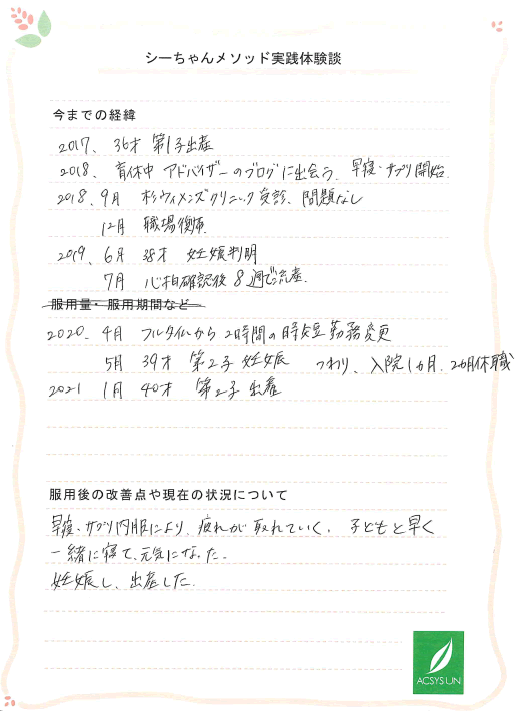 シーちゃんメソッド実践体験談
今までの経緯
2017、 36才 第1子出産
2018、 育休中 アドバイザーのブログに出会う、早寝・サプリ開始
2018、9月 杉ウィメンズクリニック受診、問題なし
12月 職場復帰
2019、6月 38才 妊娠判明
7月 心拍確認後 8週で流産
服用量・服用期間など
2020、4月 フルタイムから2時間の時短勤務変更
5月 39才 第2子妊娠 つわり、入院1ヵ月、2ヵ月休職
2021 1月 40才 第2子出産
服用後の改善点や現在の状況について
早寝・サプリ内服により、疲れが取れていく、子どもと早く
一緒に寝て、元気になった。
妊娠し、出産した。
ACSYSUN